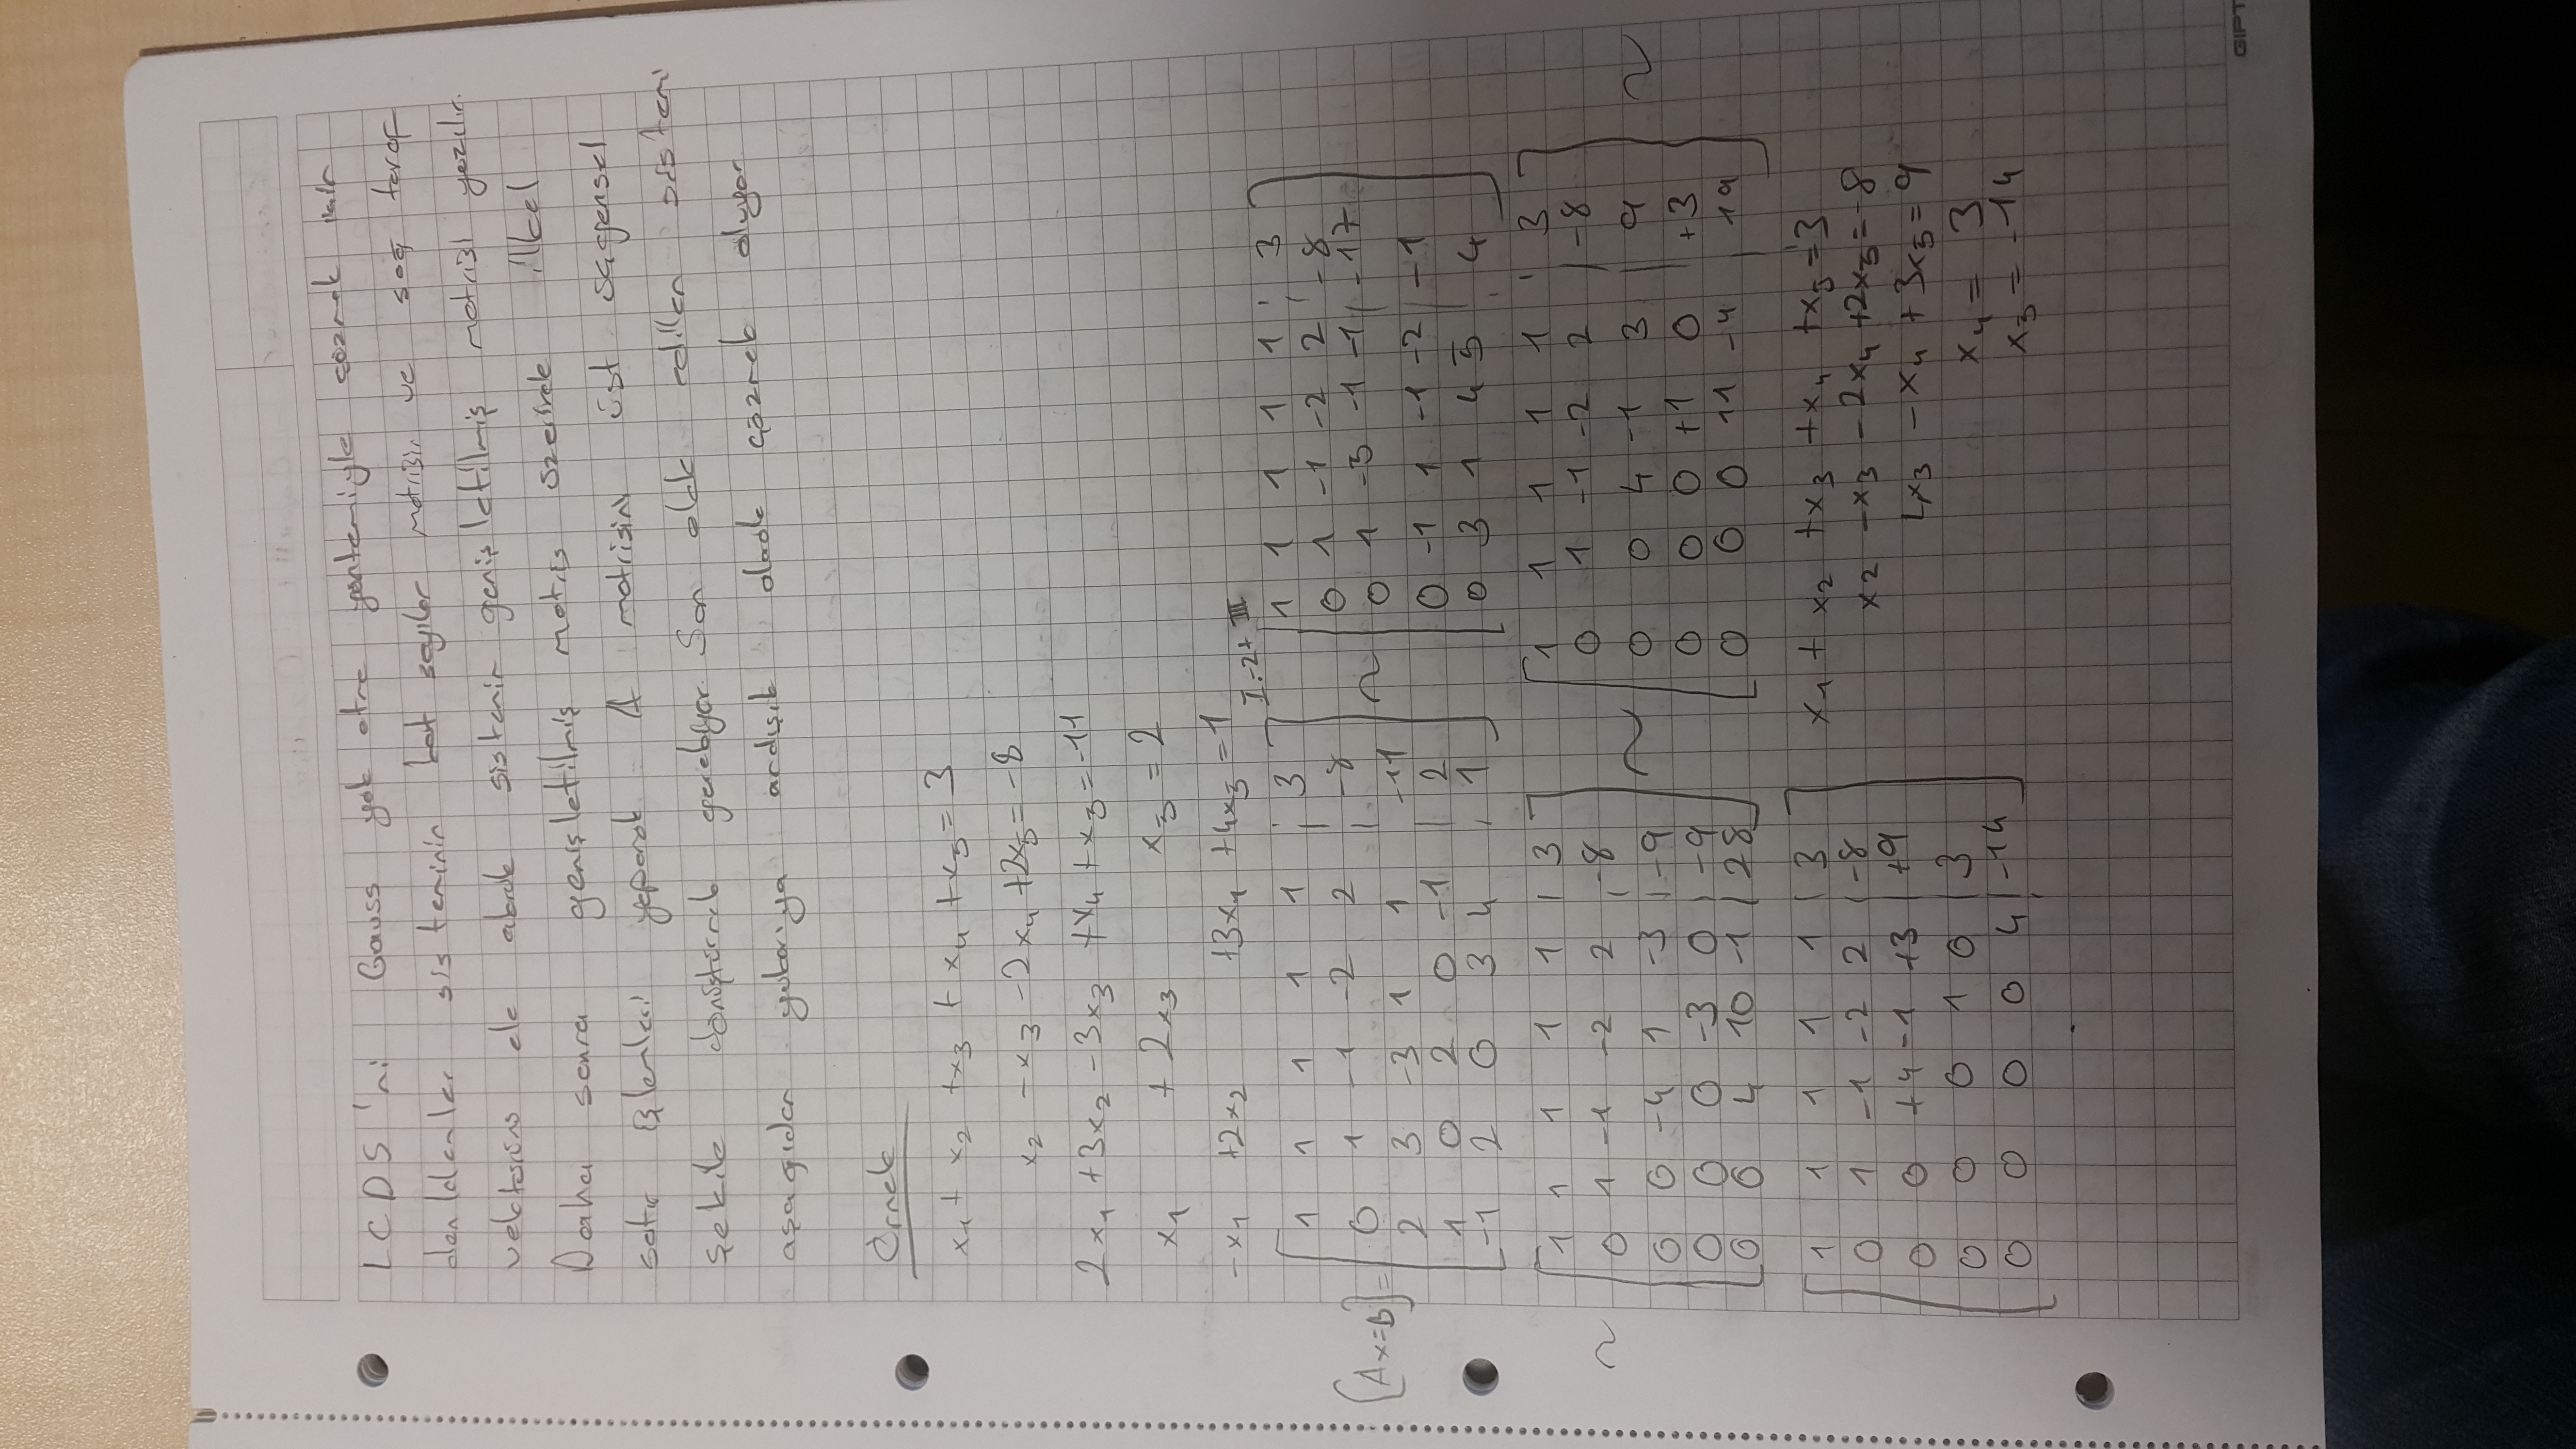 LCDS'ni Gauss yok etme yöntemiyle çözmek için
denklemler sisteminin kat sayılar matrisin ve sağ taraf
vektörünü ele alarak sistemin genişletilmiş matrisi yazılır.
Daha sonra genişletilmiş matris üzerinde ilkel
satır işlemleri yaparak A matrisini üst üçgensel
şekile dönüştürmek gerekiyor. Son elde edilen sistemi
aşağıdan yukarıya ardışık olarak çözmek oluyor
Örnek
x1 + x2 +x3 + x4 +x5 = 3
x2 -x3 -2x4 +2x5 = -8
2x1 +3x2 -3x3 +x4 +x5 = -11
x1 + 2x3 x5 = 2
-x1 +2x2 +3x4 +4x5 = 1
I.-2+III
[Ax=B] =
1 1 1 1 1 | 3
0 1 -1 -2 2 | -8
2 3 -3 1 1 -11
1 0 2 0 -1 | 2
-1 2 0 3 4 | 1
~
1 1 1 1 1 | 3
0 1 -1 -2 2 | -8
0 1 -5 -1 -1 | -17
0 -1 1 -1 -2 | -1
0 3 1 4 5 | 4
~
1 1 1 1 1 | 3
0 1 -1 -2 2 | -8
0 0 -4 1 -3 | -9
0 0 0 -3 0 | -9
0 0 4 10 -1 | 28
~
1 1 1 1 1 | 3
0 1 -1 -2 2 | -8
0 0 4 -1 3 | 9
0 0 0 +1 0 +3
0 0 0 11 -4 | 19
~
1 1 1 1 1 | 3
0 1 -1 -2 2 | -8
0 0 +4 -1 +3 | +9
0 0 0 1 0 | 3
0 0 0 0 4 | -14
x1 + x2 +x3 +x4 +x5 = 3
x2 -x3 -2x4 +2x5 = -8
4x3 -x4 +3x5 = 9
x4 = 3
x5 = -14
GIPT